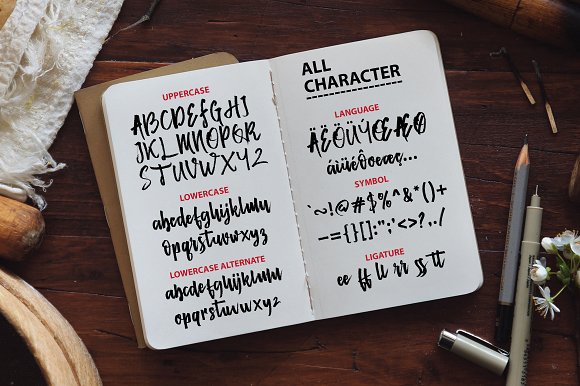 UPPERCASE
ABCDEFGHI
JKLMNOPQR
STUVWXYZ
LOWERCASE
abcdefghijklmn
opqrstuvwxyz
LOWERCASE ALTERNATE
abcdefghijklmn
opqrstuvwxyz
ALL
CHARACTER
LANGUAGE
ÄËÖÜÝŒÆØ
áïüéÔœæç...
SYMBOL
`~!@#$%^&*()+
-={}[]:";'<>?,./
LIGATURE
ee ff ll rr ss tt